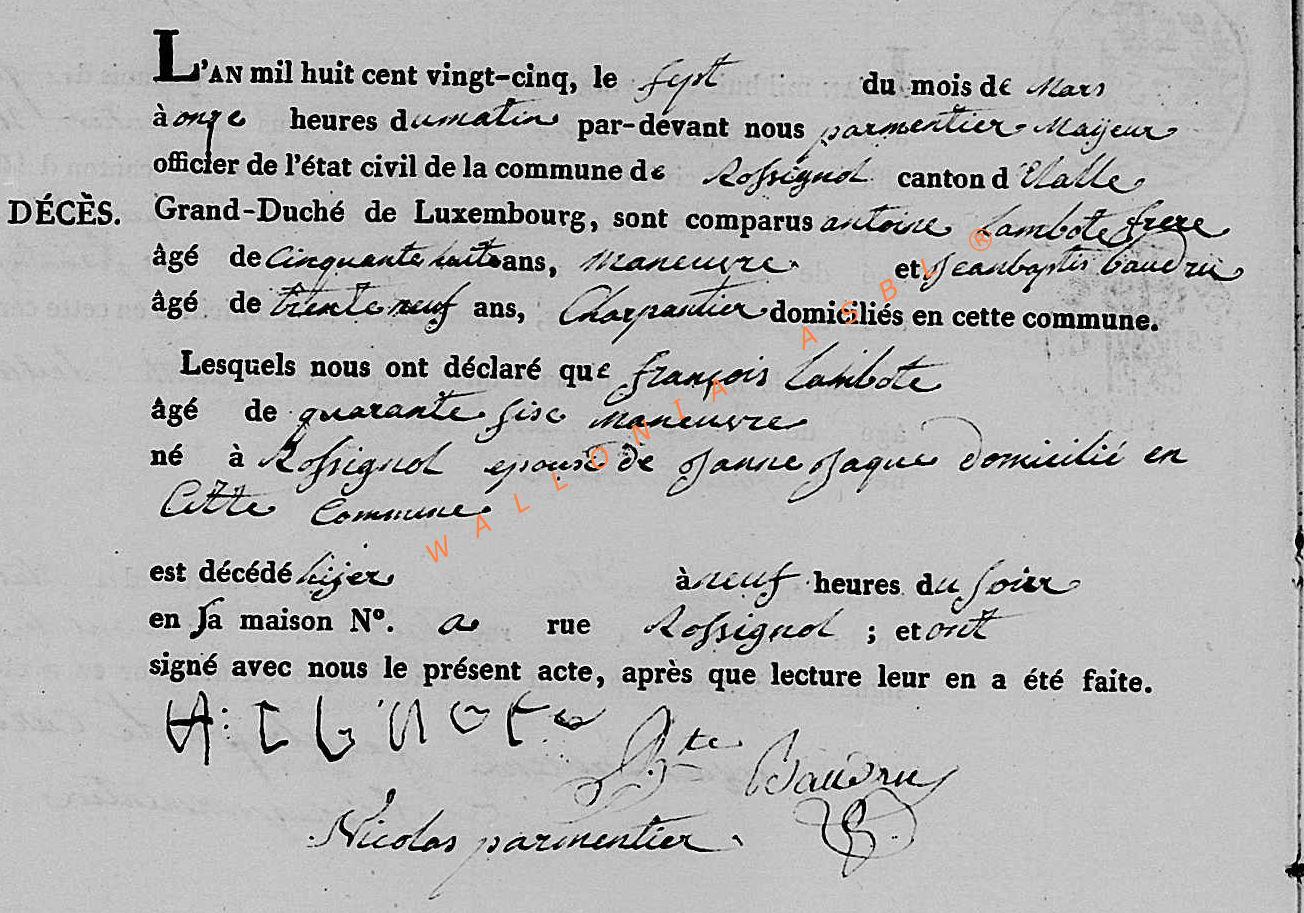 L'AN mil huit cent vingt-cinq, le sept du mois de Mars
à onze heures du matin par-devant nous parmentier Maijeur
officier de l'état civil de la commune de Rossignol canton d'Etalle
DÉCÈS. Grand-Duché de Luxembourg, sont comparus antoine Lambote frere
âgé de Cinquante huite ans, maneuvre et Jeanbaptis baudru
âgé de trente neuf ans, Charpantier domiciliés en cette commune.
Lesquels nous ont déclaré que françois Lambote
âgé de quarante sise maneuvre
né à Rossignol epouse de Janne Jaque domicilié en
Cette Commune
est décédé hijer à neuf heures du soir
en sa maison N°. a rue Rossignol ; et ont
signé avec nous le présent acte, après que lecture leur en a été faite.
Bte Baudru
Nicolas parmentier
WALLONIA ASBL ®